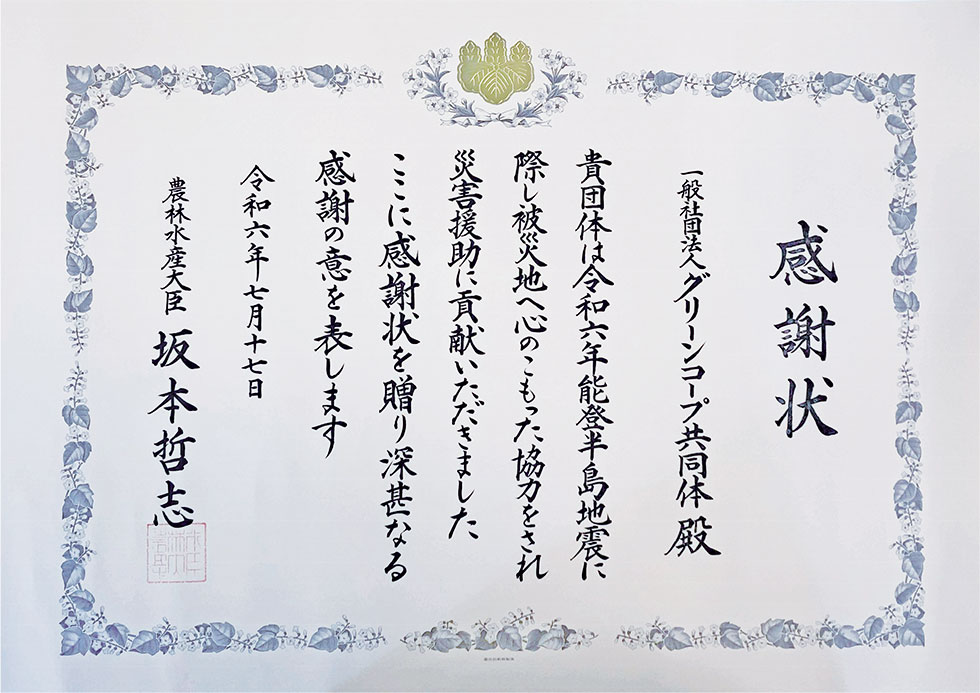 感謝状
一般社団法人グリーンコープ共同体 殿
貴団体は令和六年能登半島地震に
際し被災地へ心のこもった協力をされ
災害援助に貢献いただきました
ここに感謝状を贈り深甚なる
感謝の意を表します
令和六年七月十七日
農林水産大臣 坂本哲志